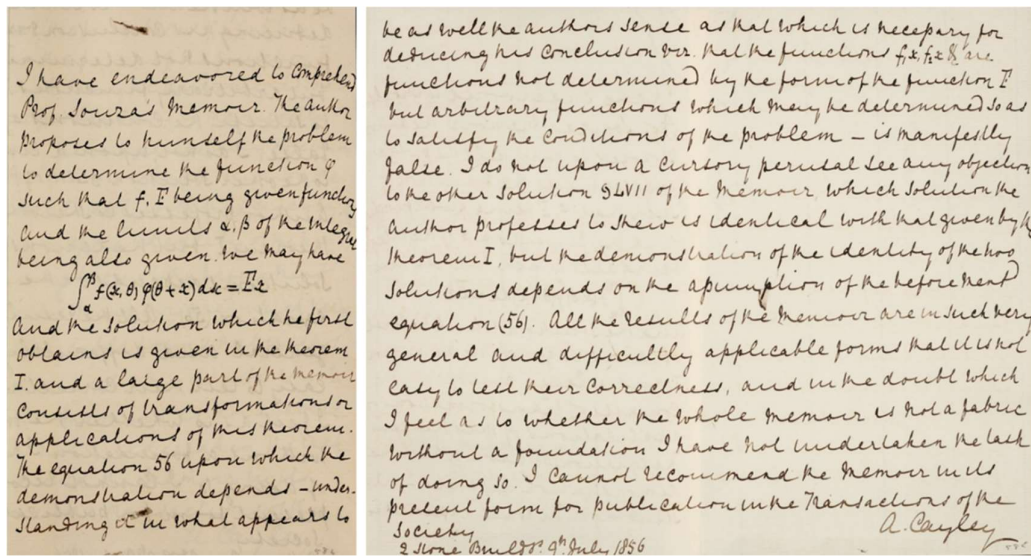 I have endeavored to comprehend
Prof Souza's Memoir. The author
proposes to himself the problem
to determine the function φ
such that f, F being given functions
and the limits α, β of the integral
being also given. We may have
∫αβ f(x,θ) φ(θ+x) dx = Fx
And the solution which he first
obtains is given in the theorem
I. and a large part of the memoir
consists of transformations or
applications of this theorem.
The equation 56 upon which the
demonstration depends – under-
standing it in what appears to
be as well the authors sense as that which is necessary for
deducing his conclusion viz. that the functions f₁x, f₂x &c are
functions not determined by the form of the function F
but arbitrary functions which may be determined so as
to satisfy the conditions of the problem – is manifestly
false. I do not upon a cursory perusal see any objection
to the other solution § LVII of the memoir which solution the
author professes to shew is identical with that given by the
theorem I, but the demonstration of the identity of the two
solutions depends on the assumption of the before ment
equation (56). All the results of the memoir are in such very
general and difficultly applicable forms that it is not
easy to test their correctness, and in the doubt which
I feel as to whether the whole memoir is not a fabric
without a foundation I have not undertaken the task
of doing so. I cannot recommend the memoir in its
present form for publication in the Transactions of the
Society
A. Cayley
2 Stone Buildgs. 9th July 1856